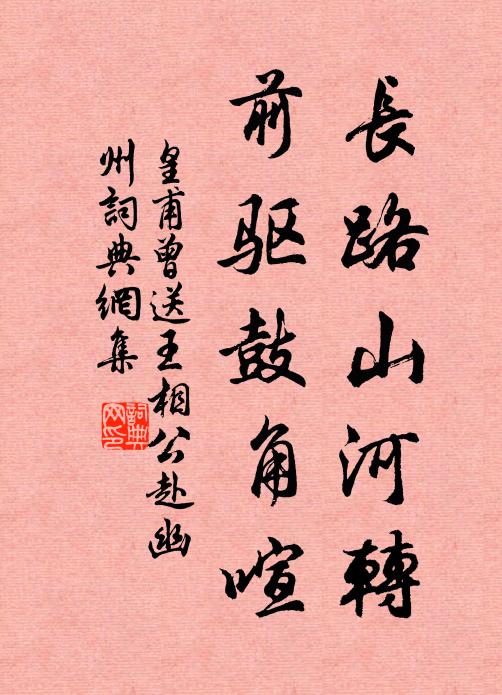 長路山河轉
前驱鼓角喧
皇甫曾送王相公赴幽
州詞典網集
詞典
网印